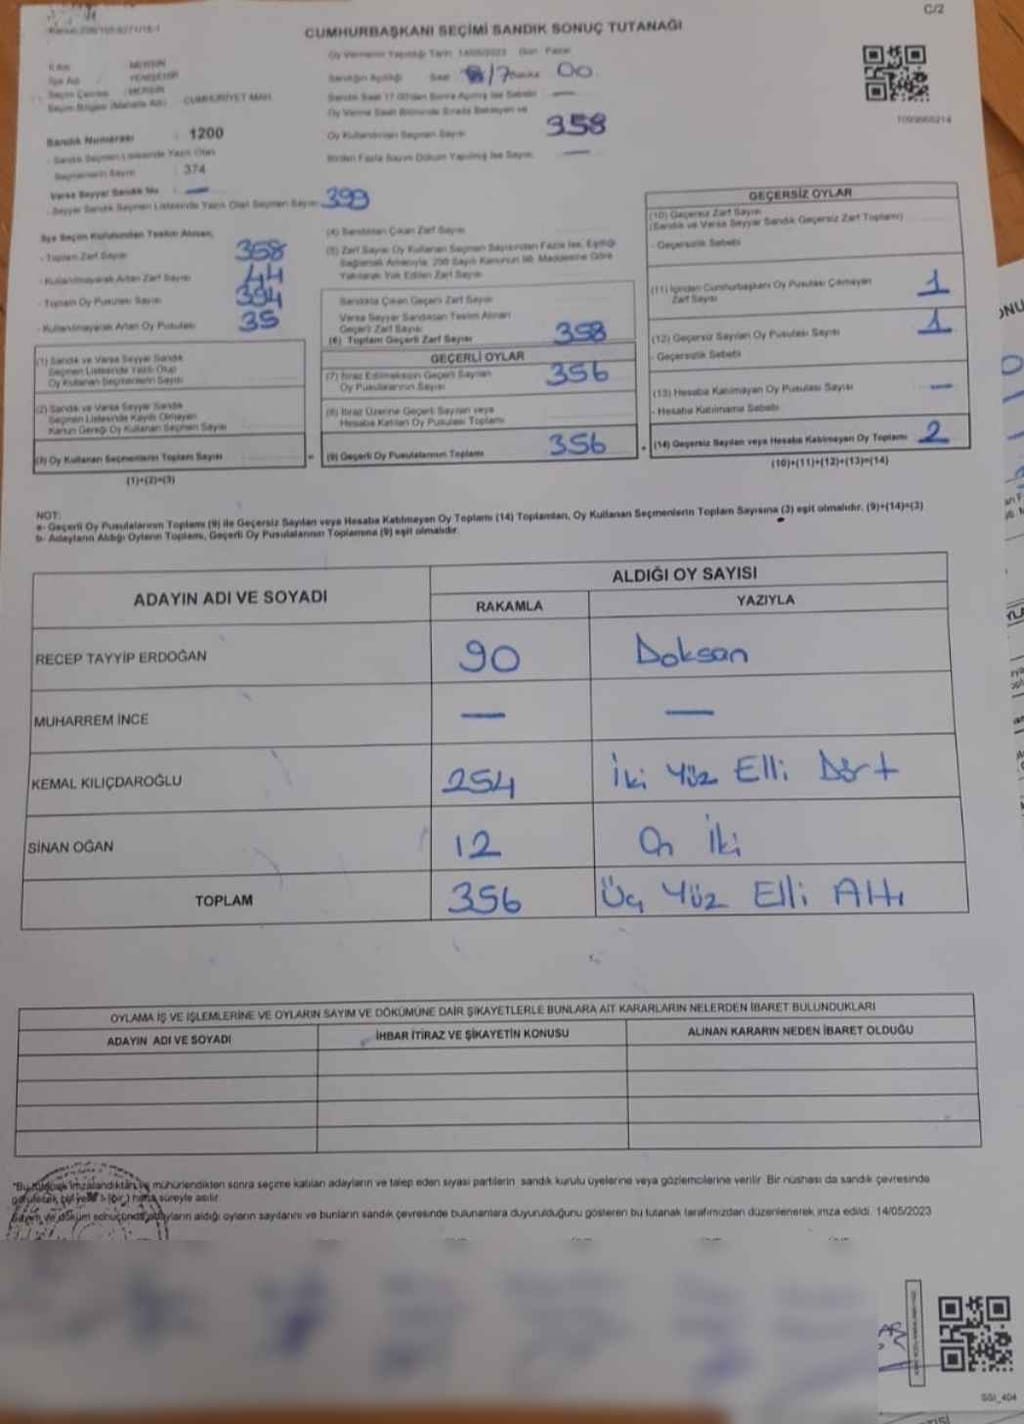 C/2
CUMHURBAŞKANI SEÇİMİ SANDIK SONUÇ TUTANAĞI
Oy Vermenin Yapıldığı Tarih 14/05/2023 Gün Pazar
İl Adı : MERSİN
İlçe Adı : YENİŞEHİR
Seçim Çevresi : MERSİN
Seçim Bölgesi (Mahalle Adı) : CUMHURİYET MAH.
Sandığın Açıldığı Saat /7 Dakika 00
Sandık Saat 17.00'den Sonra Açılmış İse Sebebi —
Oy Verme Saati Bitiminde Sırada Bekleyen ve
Oy Kullandırılan Seçmen Sayısı 358
Birden Fazla Sayım Döküm Yapılmış İse Sayısı —
Sandık Numarası : 1200
- Sandık Seçmen Listesinde Yazılı Olan
Seçmenlerin Sayısı : 374
Varsa Seyyar Sandık No : —
- Seyyar Sandık Seçmen Listesinde Yazılı Olan Seçmen Sayısı 399
İlçe Seçim Kurulundan Teslim Alınan;
- Toplam Zarf Sayısı 358
- Kullanılmayarak Artan Zarf Sayısı 44
- Toplam Oy Pusulası Sayısı 394
- Kullanılmayarak Artan Oy Pusulası 35
(1) Sandık ve Varsa Seyyar Sandık
Seçmen Listesinde Yazılı Olup
Oy Kullanan Seçmenlerin Sayısı
(2) Sandık ve Varsa Seyyar Sandık
Seçmen Listesinde Kayıtlı Olmayan
Kanun Gereği Oy Kullanan Seçmen Sayısı
(3) Oy Kullanan Seçmenlerin Toplam Sayısı
(1)+(2)=(3)
(4) Sandıktan Çıkan Zarf Sayısı
(5) Zarf Sayısı Oy Kullanan Seçmen Sayısından Fazla İse, Eşitliği
Sağlamak Amacıyla, 298 Sayılı Kanunun 98. Maddesine Göre
Yakılarak Yok Edilen Zarf Sayısı
Sandıkta Çıkan Geçerli Zarf Sayısı
Varsa Seyyar Sandıktan Teslim Alınan
Geçerli Zarf Sayısı
(6) Toplam Geçerli Zarf Sayısı 358
GEÇERLİ OYLAR
(7) İtiraz Edilmeksizin Geçerli Sayılan
Oy Pusulalarının Sayısı 356
(8) İtiraz Üzerine Geçerli Sayılan veya
Hesaba Katılan Oy Pusulası Toplamı
(9) Geçerli Oy Pusulalarının Toplamı 356
GEÇERSİZ OYLAR
(10) Geçersiz Zarf Sayısı
(Sandık ve Varsa Seyyar Sandık Geçersiz Zarf Toplamı)
- Geçersizlik Sebebi
(11) İçinden Cumhurbaşkanı Oy Pusulası Çıkmayan
Zarf Sayısı 1
(12) Geçersiz Sayılan Oy Pusulası Sayısı 1
- Geçersizlik Sebebi
(13) Hesaba Katılmayan Oy Pusulası Sayısı —
- Hesaba Katılmama Sebebi
(14) Geçersiz Sayılan veya Hesaba Katılmayan Oy Toplamı 2
(10)+(11)+(12)+(13)=(14)
NOT:
a- Geçerli Oy Pusulalarının Toplamı (9) ile Geçersiz Sayılan veya Hesaba Katılmayan Oy Toplamı (14) Toplamları, Oy Kullanan Seçmenlerin Toplam Sayısına (3) eşit olmalıdır. (9)+(14)=(3)
b- Adayların Aldığı Oyların Toplamı, Geçerli Oy Pusulalarının Toplamına (9) eşit olmalıdır.
ADAYIN ADI VE SOYADI
ALDIĞI OY SAYISI
RAKAMLA YAZIYLA
RECEP TAYYİP ERDOĞAN 90 Doksan
MUHARREM İNCE — —
KEMAL KILIÇDAROĞLU 254 İki Yüz Elli Dört
SİNAN OĞAN 12 On İki
TOPLAM 356 Üç Yüz Elli Altı
OYLAMA İŞ VE İŞLEMLERİNE VE OYLARIN SAYIM VE DÖKÜMÜNE DAİR ŞİKAYETLERLE BUNLARA AİT KARARLARIN NELERDEN İBARET BULUNDUKLARI
ADAYIN ADI VE SOYADI İHBAR İTİRAZ VE ŞİKAYETİN KONUSU ALINAN KARARIN NEDEN İBARET OLDUĞU
imzalandıktan ve mühürlendikten sonra seçime katılan adayların ve talep eden siyasi partilerin sandık kurulu üyelerine veya gözlemcilerine verilir. Bir nüshası da sandık çevresinde
hafta süreyle asılır.
Sayım ve döküm sonuçunda adayların aldığı oyların sayılarını ve bunların sandık çevresinde bulunanlara duyurulduğunu gösteren bu tutanak tarafımızdan düzenlenerek imza edildi. 14/05/2023
SSI_404